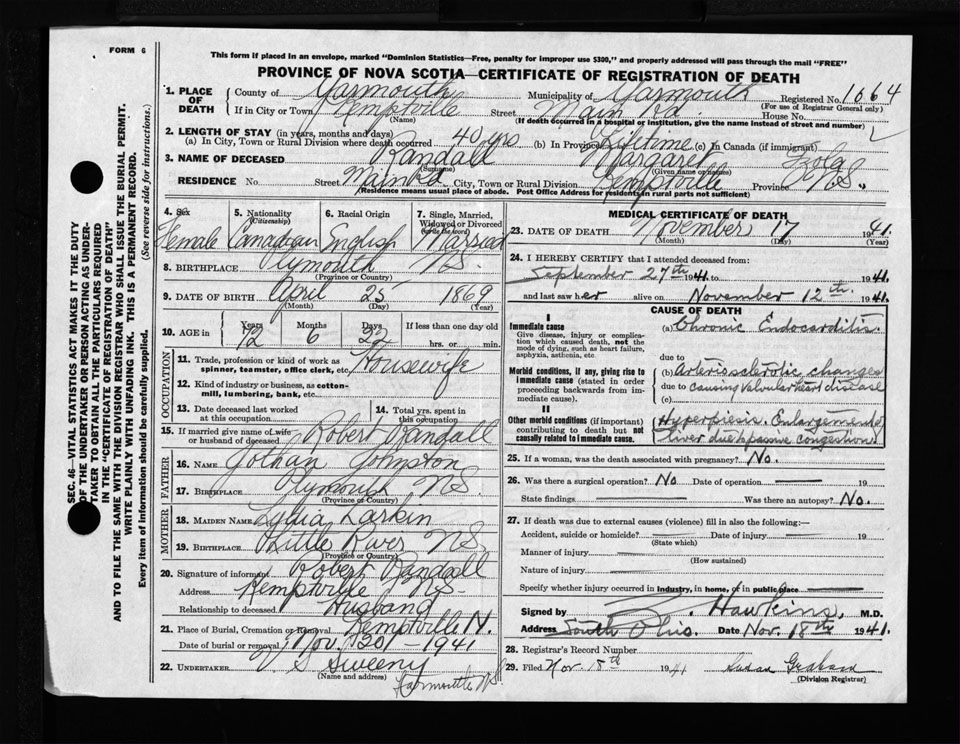 FORM 6
This form if placed in an envelope, marked "Dominion Statistics—Free, penalty for improper use $300," and properly addressed will pass through the mail "FREE"
PROVINCE OF NOVA SCOTIA—CERTIFICATE OF REGISTRATION OF DEATH
1. PLACE OF DEATH
County of Yarmouth Municipality of Yarmouth Registered No. 1664
(For use of Registrar General only)
If in City or Town Kemptville Street Main Rd House No.
(Name) (If death occurred in a hospital or institution, give the name instead of street and number)
2. LENGTH OF STAY (in years, months and days)
(a) In City, Town or Rural Division where death occurred 40 yrs (b) In Province Lifetime (c) In Canada (if immigrant)
3. NAME OF DECEASED Randall Margaret
(Surname) (Given name or names)
RESIDENCE No. Street Main Rd City, Town or Rural Division Kemptville Province N.S.
(Residence means usual place of abode. Post Office Address for residents in rural parts not sufficient)
4. Sex Female
5. Nationality (Citizenship) Canadian
6. Racial Origin English
7. Single, Married, Widowed or Divorced (write the word) Married
8. BIRTHPLACE Plymouth N.S.
(Province or Country)
9. DATE OF BIRTH April 25 1869
(Month) (Day) (Year)
10. AGE in Years 72 Months 6 Days 22 If less than one day old hrs. or min.
OCCUPATION
11. Trade, profession or kind of work as spinner, teamster, office clerk, etc. Housewife
12. Kind of industry or business, as cotton-mill, lumbering, bank, etc.
13. Date deceased last worked at this occupation
14. Total yrs. spent in this occupation
15. If married give name of wife or husband of deceased Robert Randall
FATHER
16. NAME Jothan Johnston
17. BIRTHPLACE Plymouth N.S.
(Province or Country)
MOTHER
18. MAIDEN NAME Lydia Larkin
19. BIRTHPLACE Little River N.S.
(Province or Country)
20. Signature of informant Robert Randall
Address Kemptville N.S.
Relationship to deceased Husband
21. Place of Burial, Cremation or Removal Kemptville N.
Date of burial or removal Nov. 20 - 1941
22. UNDERTAKER V S Sweeny
(Name and address)
Yarmouth N.S.
MEDICAL CERTIFICATE OF DEATH
23. DATE OF DEATH November 17 1941.
(Month) (Day) (Year)
24. I HEREBY CERTIFY that I attended deceased from:
September 27th 1941 to 1941.
and last saw her alive on November 12th. 1941.
CAUSE OF DEATH
I
Immediate cause
Give disease, injury or complication which caused death, not the mode of dying, such as heart failure, asphyxia, asthenia, etc.
(a) Chronic Endocarditis.
due to
Morbid conditions, if any, giving rise to immediate cause (stated in order proceeding backwards from immediate cause).
(b) Arteriosclerotic changes
due to causing valvular heart disease
(c)
II
Other morbid conditions (if important) contributing to death but not causally related to immediate cause.
Hyperpiesis. Enlargement
liver due to passive congestion.
25. If a woman, was the death associated with pregnancy? No.
26. Was there a surgical operation? No Date of operation — 19
State findings Was there an autopsy? No.
27. If death was due to external causes (violence) fill in also the following:—
Accident, suicide or homicide? — Date of injury — 19
(State which)
Manner of injury —
(How sustained)
Nature of injury —
Specify whether injury occurred in industry, in home, or in public place —
Signed by Hawkins, M.D.
Address South Ohio. Date Nov. 18th 1941.
28. Registrar's Record Number
29. Filed Nov 18th 1941 Susan
(Division Registrar)
SEC. 46—VITAL STATISTICS ACT MAKES IT THE DUTY
OF THE UNDERTAKER OR PERSON ACTING AS UNDER-
TAKER TO OBTAIN ALL THE PARTICULARS REQUIRED
IN THE "CERTIFICATE OF REGISTRATION OF DEATH"
AND TO FILE THE SAME WITH THE DIVISION REGISTRAR WHO SHALL ISSUE THE BURIAL PERMIT.
WRITE PLAINLY WITH UNFADING INK. THIS IS A PERMANENT RECORD.
Every item of information should be carefully supplied. (See reverse side for instructions.)